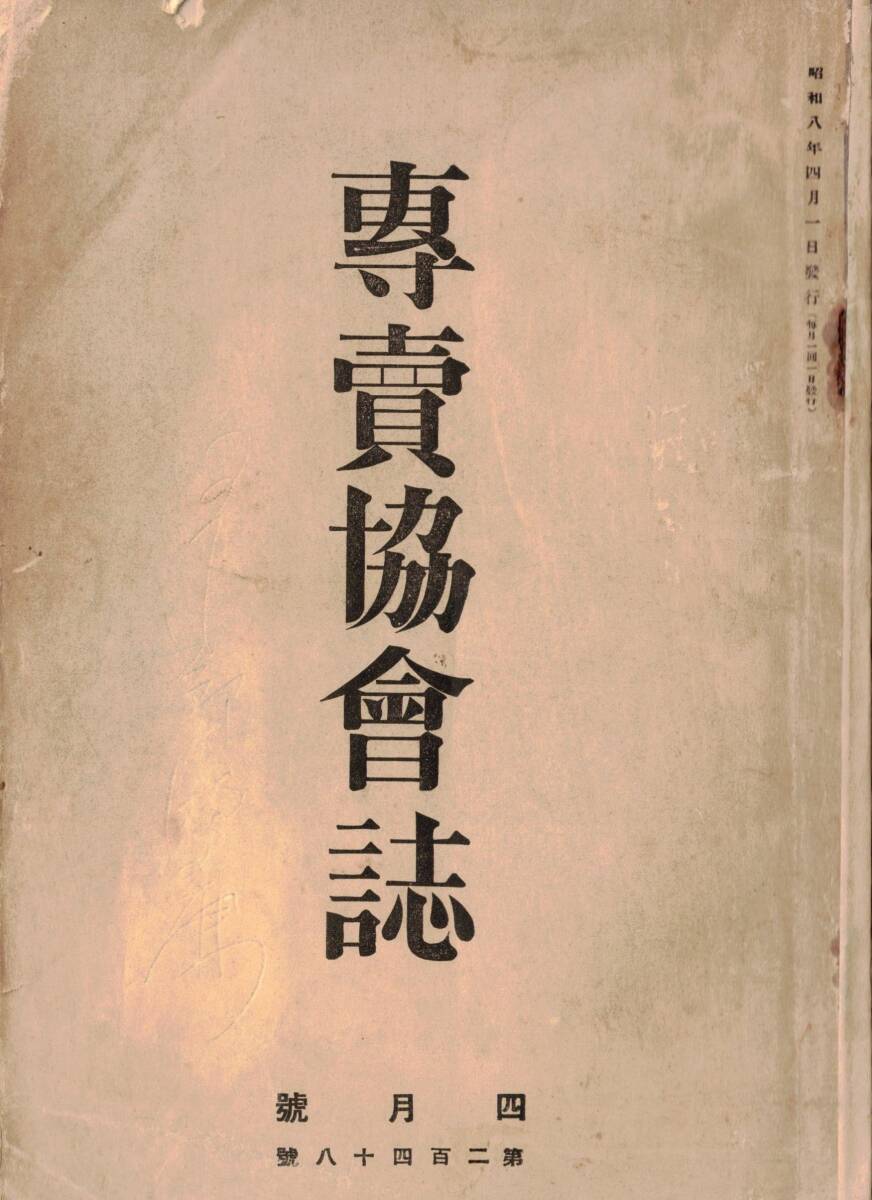 昭和八年四月一日發行（每月一回一日發行）
專賣協會誌
四月號
第二百四十八號